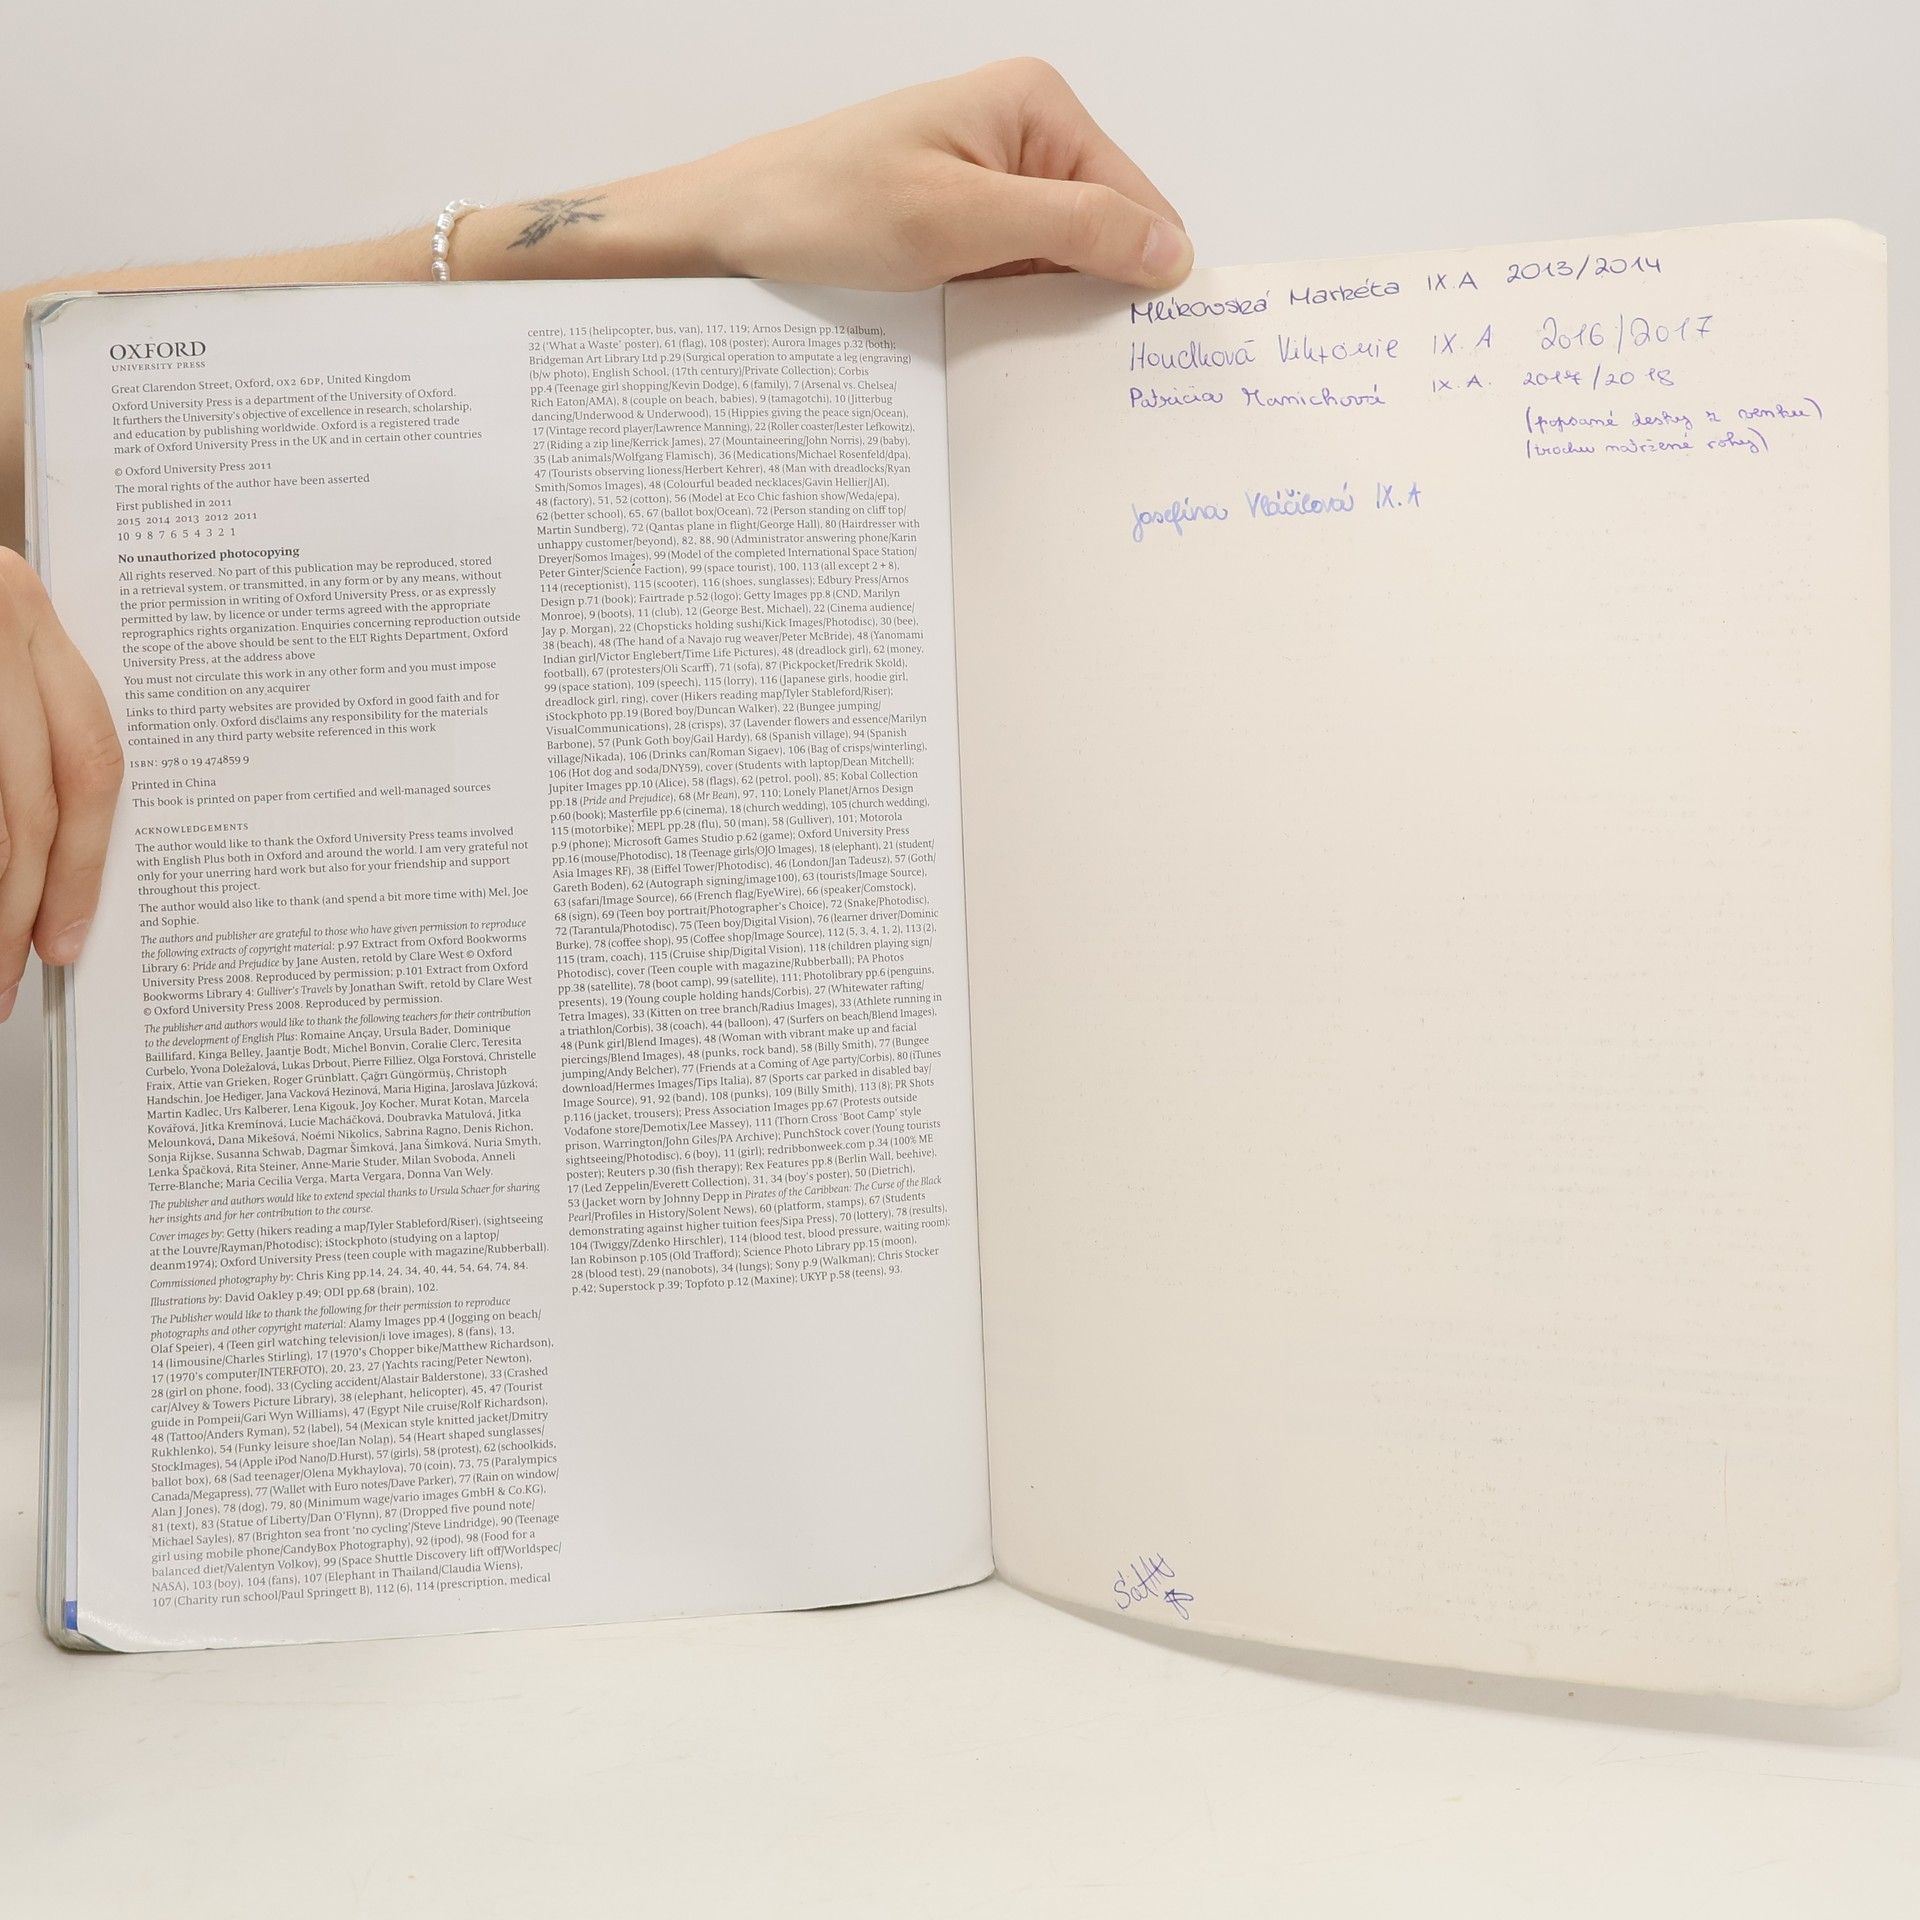 OXFORD
UNIVERSITY PRESS
Great Clarendon Street, Oxford, OX2 6DP, United Kingdom
Oxford University Press is a department of the University of Oxford.
It furthers the University's objective of excellence in research, scholarship,
and education by publishing worldwide. Oxford is a registered trade
mark of Oxford University Press in the UK and in certain other countries
© Oxford University Press 2011
The moral rights of the author have been asserted
First published in 2011
2015 2014 2013 2012 2011
10 9 8 7 6 5 4 3 2 1
No unauthorized photocopying
All rights reserved. No part of this publication may be reproduced, stored
in a retrieval system, or transmitted, in any form or by any means, without
the prior permission in writing of Oxford University Press, or as expressly
permitted by law, by licence or under terms agreed with the appropriate
reprographics rights organization. Enquiries concerning reproduction outside
the scope of the above should be sent to the ELT Rights Department, Oxford
University Press, at the address above
You must not circulate this work in any other form and you must impose
this same condition on any acquirer
Links to third party websites are provided by Oxford in good faith and for
information only. Oxford disclaims any responsibility for the materials
contained in any third party website referenced in this work
ISBN: 978 0 19 474859 9
Printed in China
This book is printed on paper from certified and well-managed sources
ACKNOWLEDGEMENTS
The author would like to thank the Oxford University Press teams involved
with English Plus both in Oxford and around the world. I am very grateful not
only for your unerring hard work but also for your friendship and support
throughout this project.
The author would also like to thank (and spend a bit more time with) Mel, Joe
and Sophie.
The authors and publisher are grateful to those who have given permission to reproduce
the following extracts of copyright material: p.97 Extract from Oxford Bookworms
Library 6: Pride and Prejudice by Jane Austen, retold by Clare West © Oxford
University Press 2008. Reproduced by permission; p.101 Extract from Oxford
Bookworms Library 4: Gulliver's Travels by Jonathan Swift, retold by Clare West
© Oxford University Press 2008. Reproduced by permission.
The publisher and authors would like to thank the following teachers for their contribution
to the development of English Plus: Romaine Ançay, Ursula Bader, Dominique
Baillifard, Kinga Belley, Jaantje Bodt, Michel Bonvin, Coralie Clerc, Teresita
Curbelo, Yvona Doležalová, Lukas Drbout, Pierre Filliez, Olga Forstová, Christelle
Fraix, Attie van Grieken, Roger Grünblatt, Çağrı Güngörmüş, Christoph
Handschin, Joe Hediger, Jana Vacková Hezinová, Maria Higina, Jaroslava Jůzková;
Martin Kadlec, Urs Kalberer, Lena Kigouk, Joy Kocher, Murat Kotan, Marcela
Kovářová, Jitka Kremínová, Lucie Macháčková, Doubravka Matulová, Jitka
Melounková, Dana Mikešová, Noémi Nikolics, Sabrina Ragno, Denis Richon,
Sonja Rijkse, Susanna Schwab, Dagmar Šimková, Jana Šimková, Nuria Smyth,
Lenka Špačková, Rita Steiner, Anne-Marie Studer, Milan Svoboda, Anneli
Terre-Blanche; Maria Cecilia Verga, Marta Vergara, Donna Van Wely.
The publisher and authors would like to extend special thanks to Ursula Schaer for sharing
her insights and for her contribution to the course.
Cover images by: Getty (hikers reading a map/Tyler Stableford/Riser), (sightseeing
at the Louvre/Rayman/Photodisc); iStockphoto (studying on a laptop/
deanm1974); Oxford University Press (teen couple with magazine/Rubberball).
Commissioned photography by: Chris King pp.14, 24, 34, 40, 44, 54, 64, 74, 84.
Illustrations by: David Oakley p.49; ODI pp.68 (brain), 102.
The Publisher would like to thank the following for their permission to reproduce
photographs and other copyright material: Alamy Images pp.4 (Jogging on beach/
Olaf Speier), 4 (Teen girl watching television/i love images), 8 (fans), 13,
14 (limousine/Charles Stirling), 17 (1970's Chopper bike/Matthew Richardson),
17 (1970's computer/INTERFOTO), 20, 23, 27 (Yachts racing/Peter Newton),
28 (girl on phone, food), 33 (Cycling accident/Alastair Balderstone), 33 (Crashed
car/Alvey & Towers Picture Library), 38 (elephant, helicopter), 45, 47 (Tourist
guide in Pompeii/Gari Wyn Williams), 47 (Egypt Nile cruise/Rolf Richardson),
48 (Tattoo/Anders Ryman), 52 (label), 54 (Mexican style knitted jacket/Dmitry
Rukhlenko), 54 (Funky leisure shoe/Ian Nolan), 54 (Heart shaped sunglasses/
StockImages), 54 (Apple iPod Nano/D.Hurst), 57 (girls), 58 (protest), 62 (schoolkids,
ballot box), 68 (Sad teenager/Olena Mykhaylova), 70 (coin), 73, 75 (Paralympics
Canada/Megapress), 77 (Wallet with Euro notes/Dave Parker), 77 (Rain on window/
Alan J Jones), 78 (dog), 79, 80 (Minimum wage/vario images GmbH & Co.KG),
81 (text), 83 (Statue of Liberty/Dan O'Flynn), 87 (Dropped five pound note/
Michael Sayles), 87 (Brighton sea front 'no cycling'/Steve Lindridge), 90 (Teenage
girl using mobile phone/CandyBox Photography), 92 (ipod), 98 (Food for a
balanced diet/Valentyn Volkov), 99 (Space Shuttle Discovery lift off/Worldspec/
NASA), 103 (boy), 104 (fans), 107 (Elephant in Thailand/Claudia Wiens),
107 (Charity run school/Paul Springett B), 112 (6), 114 (prescription, medical
centre), 115 (helipcopter, bus, van), 117, 119; Arnos Design pp.12 (album),
32 ('What a Waste' poster), 61 (flag), 108 (poster); Aurora Images p.32 (both);
Bridgeman Art Library Ltd p.29 (Surgical operation to amputate a leg (engraving)
(b/w photo), English School, (17th century)/Private Collection); Corbis
pp.4 (Teenage girl shopping/Kevin Dodge), 6 (family), 7 (Arsenal vs. Chelsea/
Rich Eaton/AMA), 8 (couple on beach, babies), 9 (tamagotchi), 10 (Jitterbug
dancing/Underwood & Underwood), 15 (Hippies giving the peace sign/Ocean),
17 (Vintage record player/Lawrence Manning), 22 (Roller coaster/Lester Lefkowitz),
27 (Riding a zip line/Kerrick James), 27 (Mountaineering/John Norris), 29 (baby),
35 (Lab animals/Wolfgang Flamisch), 36 (Medications/Michael Rosenfeld/dpa),
47 (Tourists observing lioness/Herbert Kehrer), 48 (Man with dreadlocks/Ryan
Smith/Somos Images), 48 (Colourful beaded necklaces/Gavin Hellier/JAI),
48 (factory), 51, 52 (cotton), 56 (Model at Eco Chic fashion show/Weda/epa),
62 (better school), 65, 67 (ballot box/Ocean), 72 (Person standing on cliff top/
Martin Sundberg), 72 (Qantas plane in flight/George Hall), 80 (Hairdresser with
unhappy customer/beyond), 82, 88, 90 (Administrator answering phone/Karin
Dreyer/Somos Images), 99 (Model of the completed International Space Station/
Peter Ginter/Science Faction), 99 (space tourist), 100, 113 (all except 2 + 8),
114 (receptionist), 115 (scooter), 116 (shoes, sunglasses); Edbury Press/Arnos
Design p.71 (book); Fairtrade p.52 (logo); Getty Images pp.8 (CND, Marilyn
Monroe), 9 (boots), 11 (club), 12 (George Best, Michael), 22 (Cinema audience/
Jay p. Morgan), 22 (Chopsticks holding sushi/Kick Images/Photodisc), 30 (bee),
38 (beach), 48 (The hand of a Navajo rug weaver/Peter McBride), 48 (Yanomami
Indian girl/Victor Englebert/Time Life Pictures), 48 (dreadlock girl), 62 (money,
football), 67 (protesters/Oli Scarff), 71 (sofa), 87 (Pickpocket/Fredrik Skold),
99 (space station), 109 (speech), 115 (lorry), 116 (Japanese girls, hoodie girl,
dreadlock girl, ring), cover (Hikers reading map/Tyler Stableford/Riser);
iStockphoto pp.19 (Bored boy/Duncan Walker), 22 (Bungee jumping/
VisualCommunications), 28 (crisps), 37 (Lavender flowers and essence/Marilyn
Barbone), 57 (Punk Goth boy/Gail Hardy), 68 (Spanish village), 94 (Spanish
village/Nikada), 106 (Drinks can/Roman Sigaev), 106 (Bag of crisps/winterling),
106 (Hot dog and soda/DNY59), cover (Students with laptop/Dean Mitchell);
Jupiter Images pp.10 (Alice), 58 (flags), 62 (petrol, pool), 85; Kobal Collection
pp.18 (Pride and Prejudice), 68 (Mr Bean), 97, 110; Lonely Planet/Arnos Design
p.60 (book); Masterfile pp.6 (cinema), 18 (church wedding), 105 (church wedding),
115 (motorbike); MEPL pp.28 (flu), 50 (man), 58 (Gulliver), 101; Motorola
p.9 (phone); Microsoft Games Studio p.62 (game); Oxford University Press
pp.16 (mouse/Photodisc), 18 (Teenage girls/OJO Images), 18 (elephant), 21 (student/
Asia Images RF), 38 (Eiffel Tower/Photodisc), 46 (London/Jan Tadeusz), 57 (Goth/
Gareth Boden), 62 (Autograph signing/image100), 63 (tourists/Image Source),
63 (safari/Image Source), 66 (French flag/EyeWire), 66 (speaker/Comstock),
68 (sign), 69 (Teen boy portrait/Photographer's Choice), 72 (Snake/Photodisc),
72 (Tarantula/Photodisc), 75 (Teen boy/Digital Vision), 76 (learner driver/Dominic
Burke), 78 (coffee shop), 95 (Coffee shop/Image Source), 112 (5, 3, 4, 1, 2), 113 (2),
115 (tram, coach), 115 (Cruise ship/Digital Vision), 118 (children playing sign/
Photodisc), cover (Teen couple with magazine/Rubberball); PA Photos
pp.38 (satellite), 78 (boot camp), 99 (satellite), 111; Photolibrary pp.6 (penguins,
presents), 19 (Young couple holding hands/Corbis), 27 (Whitewater rafting/
Tetra Images), 33 (Kitten on tree branch/Radius Images), 33 (Athlete running in
a triathlon/Corbis), 38 (coach), 44 (balloon), 47 (Surfers on beach/Blend Images),
48 (Punk girl/Blend Images), 48 (Woman with vibrant make up and facial
piercings/Blend Images), 48 (punks, rock band), 58 (Billy Smith), 77 (Bungee
jumping/Andy Belcher), 77 (Friends at a Coming of Age party/Corbis), 80 (iTunes
download/Hermes Images/Tips Italia), 87 (Sports car parked in disabled bay/
Image Source), 91, 92 (band), 108 (punks), 109 (Billy Smith), 113 (8); PR Shots
p.116 (jacket, trousers); Press Association Images pp.67 (Protests outside
Vodafone store/Demotix/Lee Massey), 111 (Thorn Cross 'Boot Camp' style
prison, Warrington/John Giles/PA Archive); PunchStock cover (Young tourists
sightseeing/Photodisc), 6 (boy), 11 (girl); redribbonweek.com p.34 (100% ME
poster); Reuters p.30 (fish therapy); Rex Features pp.8 (Berlin Wall, beehive),
17 (Led Zeppelin/Everett Collection), 31, 34 (boy's poster), 50 (Dietrich),
53 (Jacket worn by Johnny Depp in Pirates of the Caribbean: The Curse of the Black
Pearl/Profiles in History/Solent News), 60 (platform, stamps), 67 (Students
demonstrating against higher tuition fees/Sipa Press), 70 (lottery), 78 (results),
104 (Twiggy/Zdenko Hirschler), 114 (blood test, blood pressure, waiting room);
Ian Robinson p.105 (Old Trafford); Science Photo Library pp.15 (moon),
28 (blood test), 29 (nanobots), 34 (lungs); Sony p.9 (Walkman); Chris Stocker
p.42; Superstock p.39; Topfoto p.12 (Maxine); UKYP p.58 (teens), 93.
Mlíkovská Markéta IX.A 2013/2014
Houdková Viktorie IX.A 2016/2017
Patricia Manichová IX.A. 2017/2018
(popsané desky z venku)
(trochu natržené rohy)
Josefína Vláčilová IX.A